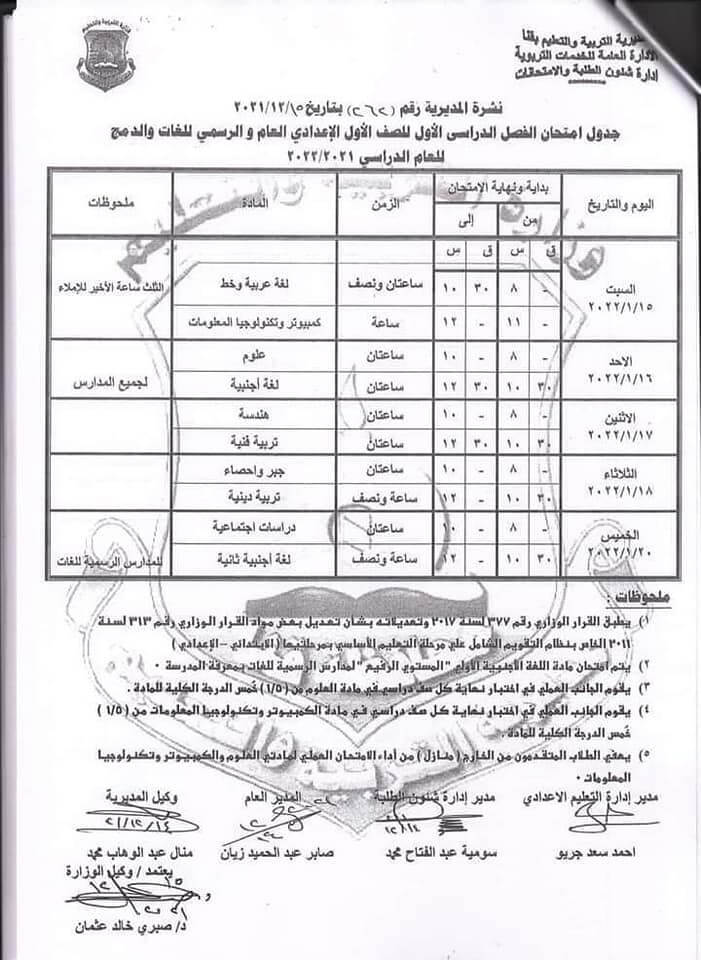 مديرية التربية والتعليم بقنا
الإدارة العامة للخدمات التربوية
إدارة شئون الطلبة والامتحانات
نشرة المديرية رقم (٢٦٢) بتاريخ ٢٠٢١/١٢/١٥
جدول امتحان الفصل الدراسى الأول للصف الأول الإعدادي العام و الرسمي للغات والدمج
للعام الدراسي ٢٠٢٢/٢٠٢١
اليوم والتاريخ بداية ونهاية الإمتحان الزمن المادة ملحوظات
من إلى
ق س ق س
السبت ٢٠٢٢/١/١٥
- ٨ ٣٠ ١٠ ساعتان ونصف لغة عربية وخط الثلث ساعة الأخير للإملاء
- ١١ - ١٢ ساعة كمبيوتر وتكنولوجيا المعلومات
الاحد ٢٠٢٢/١/١٦
- ٨ - ١٠ ساعتان علوم
٣٠ ١٠ ٣٠ ١٢ ساعتان لغة أجنبية لجميع المدارس
الاثنين ٢٠٢٢/١/١٧
- ٨ - ١٠ ساعتان هندسة
٣٠ ١٠ ٣٠ ١٢ ساعتان تربية فنية
الثلاثاء ٢٠٢٢/١/١٨
- ٨ - ١٠ ساعتان جبر واحصاء
٣٠ ١٠ - ١٢ ساعة ونصف تربية دينية
الخميس ٢٠٢٢/١/٢٠
- ٨ - ١٠ ساعتان دراسات اجتماعية
٣٠ ١٠ - ١٢ ساعة ونصف لغة أجنبية ثانية للمدارس الرسمية للغات
ملحوظات :
١) يطبق القرار الوزاري رقم ٣٧٧ لسنة ٢٠١٧ وتعديلاته بشأن تعديل بعض مواد القرار الوزاري رقم ٣١٣ لسنة
٢٠١١ الخاص بنظام التقويم الشامل علي مرحلة التعليم الأساسي بمرحلتيها ( الابتدائي – الإعدادي )
٢) يتم امتحان مادة اللغة الأجنبية الأولي "المستوي الرفيع" لمدارس الرسمية للغات بمعرفة المدرسة .
٣) يقوم الجانب العملي في اختبار نهاية كل صف دراسي في مادة العلوم من (١/٥) خُمس الدرجة الكلية للمادة .
٤) يقوم الجانب العملي في اختبار نهاية كل صف دراسي في مادة الكمبيوتر وتكنولوجيا المعلومات من (١/٥)
خُمس الدرجة الكلية للمادة .
٥) يعفي الطلاب المتقدمون من الخارج ( منازل ) من أداء الامتحان العملي لمادتي العلوم والكمبيوتر وتكنولوجيا
المعلومات .
مدير إدارة التعليم الاعدادي مدير إدارة شئون الطلبة المدير العام وكيل المديرية
احمد سعد جريو سومية عبد الفتاح محمد صابر عبد الحميد زيان منال عبد الوهاب محمد
يعتمد / وكيل الوزارة
د/ صبري خالد عثمان